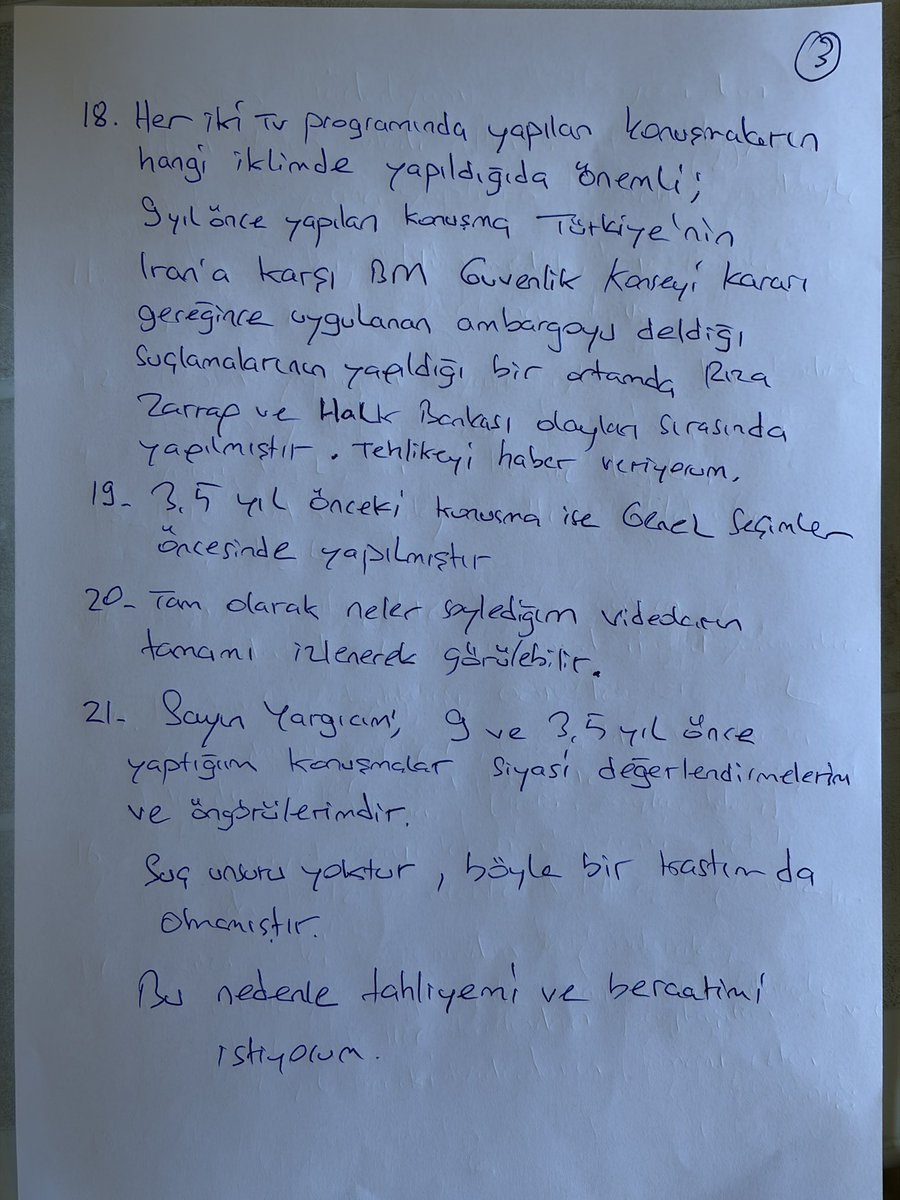 3
18. Her iki TV programında yapılan konuşmaların
hangi iklimde yapıldığıda önemli;
9 yıl önce yapılan konuşma Türkiye'nin
Iran'a karşı BM Güvenlik Konseyi kararı
gereğince uygulanan ambargoyu deldiği
suçlamalarının yapıldığı bir ortamda Rıza
Zarrap ve Halk Bankası olayları sırasında
yapılmıştır. Tehlikeyi haber veriyorum.
19- 3,5 yıl önceki konuşma ise Genel Seçimler
öncesinde yapılmıştır
20- Tam olarak neler söylediğim videoların
tamamı izlenerek görülebilir.
21- Sayın Yargıcım, 9 ve 3,5 yıl önce
yaptığım konuşmalar siyasi değerlendirmelerim
ve öngörülerimdir.
Suç unsuru yoktur, böyle bir kastım da
olmamıştır.
Bu nedenle tahliyemi ve beraatimi
istiyorum.